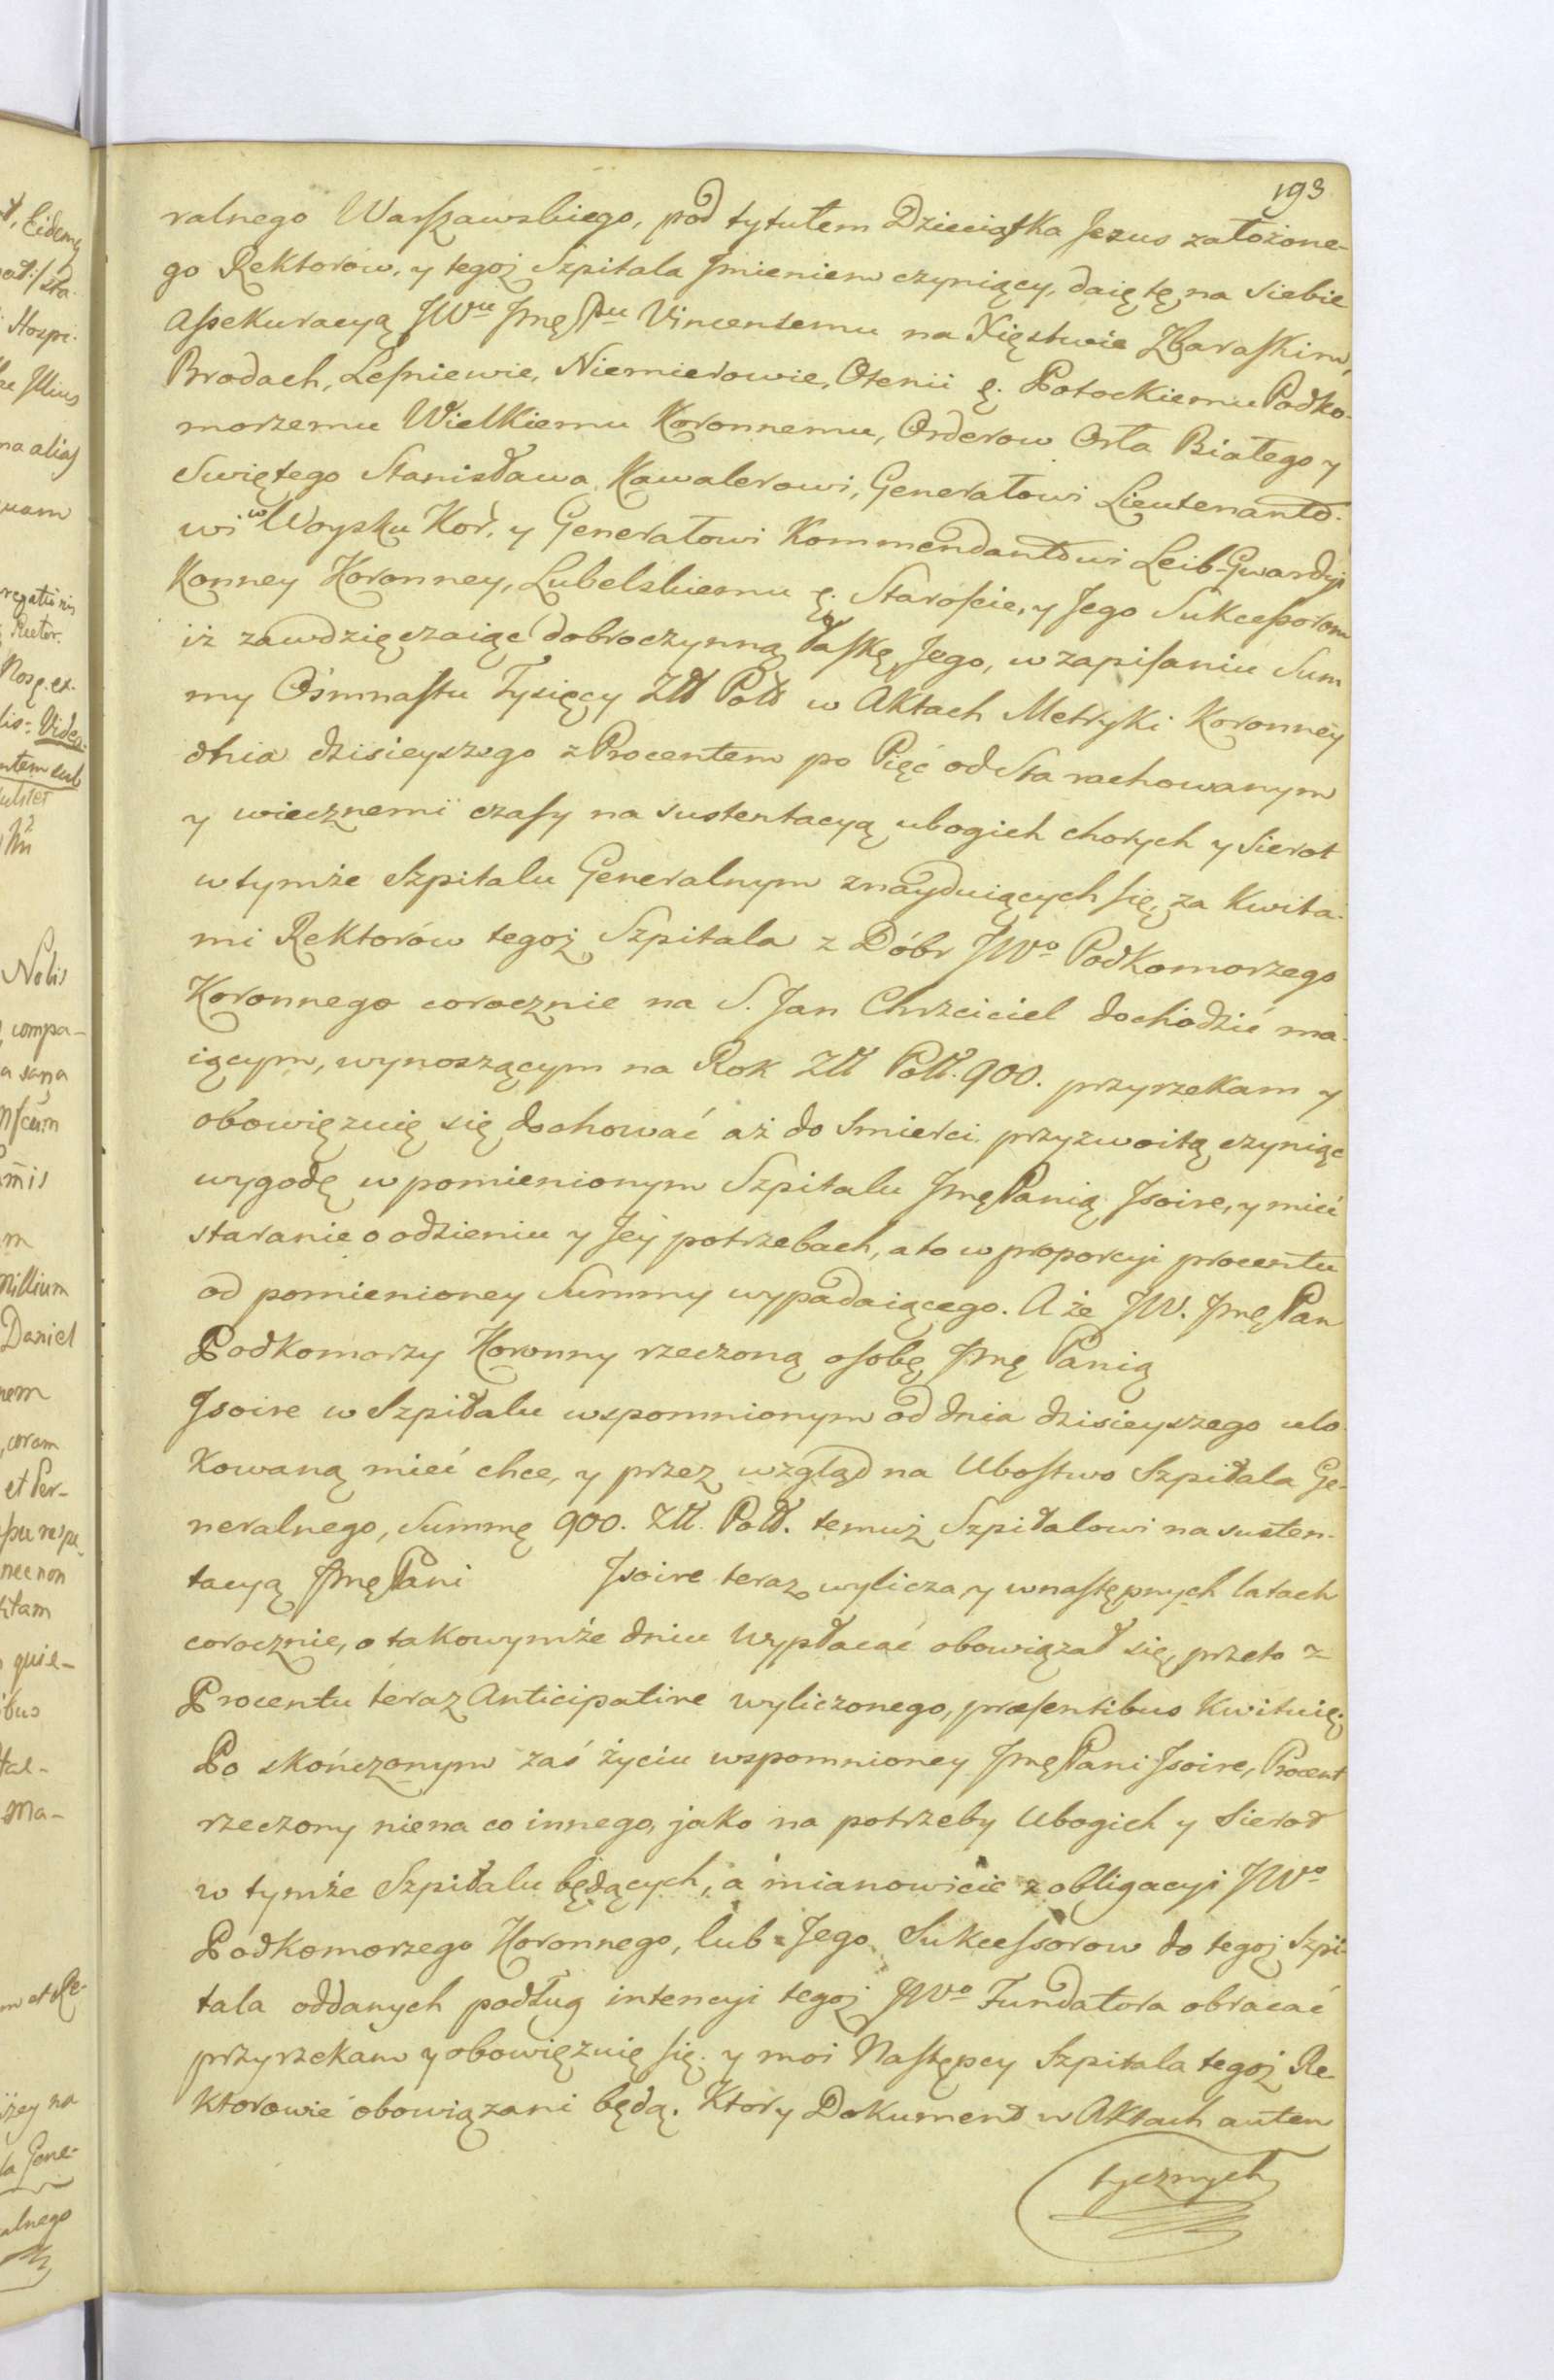 193
ralnego Warszawskiego, pod tytułem Dzieciątka Jezus założone-
go Rektorow, y tegoż Szpitala Jmieniem czyniący, daię tę na siebie
Assekuracyą JWu Jmę Pu Vincentemu na Xięstwie Zbaraskim,
Brodach, Leśniewie, Niemierowie, Otenii &. Potockiemu Podko-
morzemu Wielkiemu Koronnemu, Orderow Orła Białego y
Swiętego Stanisława Kawalerowi, Generałowi Lieutenanto-
wi w Woysku Kor. y Generałowi Kommendantowi Leib-Gwardyi
Konney Koronney, Lubelskiemu &. Staroście, y Jego Sukcessorom
iż zawdzięczaiąc dobroczynną łaskę Jego, w zapisaniu Sum
my Ośmnastu Tysięcy Złł Poll w Aktach Metryki Koronney
dnia dzisieyszego z Procentem po Pięć od Sta rachowanym
y wiecznemi czasy na sustentacyą ubogich chorych y Sierot
w tymże Szpitalu Generalnym znayduiących się, za Kwita-
mi Rektorów tegoż Szpitala z Dóbr JWo Podkomorzego
Koronnego corocznie na S. Jan Chrzciciel dochodzić ma-
iącym, wynoszącym na Rok Złł Poll. 900. przyrzekam y
obowięzuię się dochować aż do Smierci przyzwoitą czyniąc
wygodę w pomienionym Szpitalu Jmę Panią Jsoire, y mieć
staranie o odzieniu y Jey potrzebach, a to w proporcyi procentu
od pomienioney Summy wypadaiącego. A że JW. Jmę Pan
Podkomorzy Koronny rzeczoną osobę Jmę Panią
Jsoire w Szpitalu wspomnionym od dnia dzisieyszego ulo-
kowaną mieć chce, y przez wzgląd na Ubostwo Szpitala Ge-
neralnego, Summę 900. Złł. Poll. temuż Szpitalowi na susten-
tacyą Jmę Pani Jsoire teraz wylicza, y w następnych latach
corocznie, o takowymże dniu Wypłacać obowiązał się, przeto z
Procentu teraz Anticipative wyliczonego, præsentibus Kwituię;
Po skończonym zaś życiu wspomnioney Jmę Pani Jsoire, Procent
rzeczony nie na co innego, jako na potrzeby Ubogich y Sierot
w tymże Szpitalu będących, a mianowicie z obligacyi JWo
Podkomorzego Koronnego, lub Jego Sukcessorow do tegoż Szpi-
tala oddanych podług intencyi tegoż JWo Fundatora obracać
przyrzekam y obowięzuię się. y moi Następcy Szpitala tegoż Re-
ktorowie obowiązani będą. Ktory Dokument w Aktach auten
tycznych